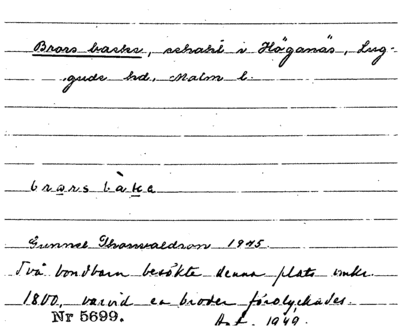 Brors backe, schakt i Höganäs, Lug-
gude hd, Malm l.
brars bàka
Gunnel Thorvaldson 1945
Två bondbarn besökte denna plats omkr.
1800, varvid en broder förolyckades.
Nr 5699. Ant. 1949.